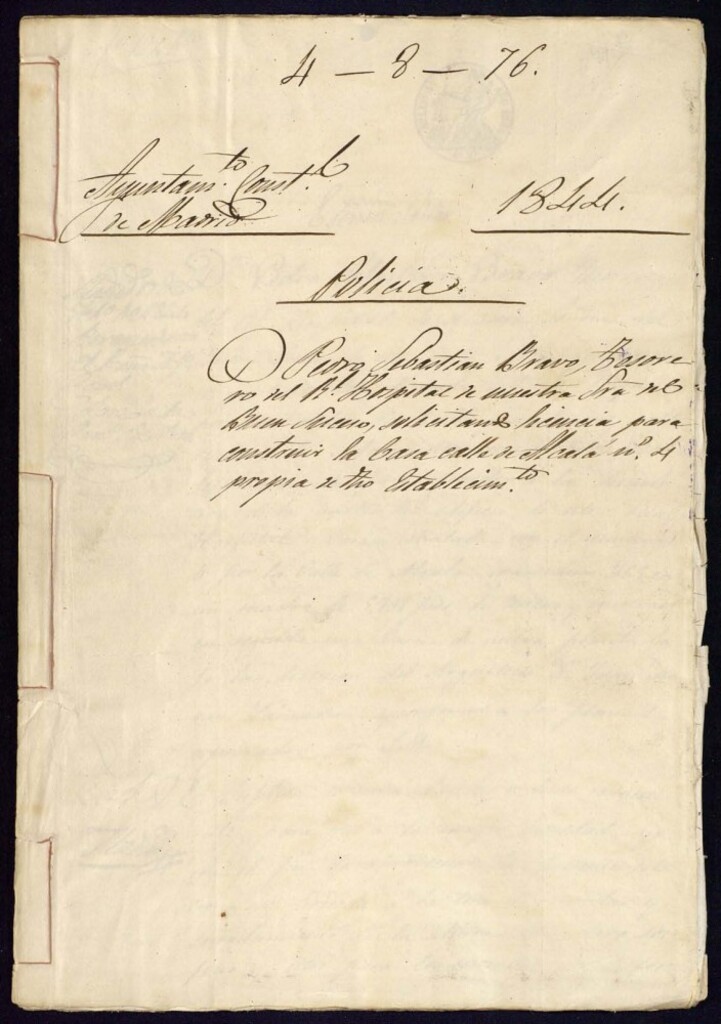 4 - 8 - 76.
Ayuntam.to Const.l
de Madrid
1844.
Policia.
D Pedro Sebastian Bravo, Tesore
ro del Rl. Hospital de nuestra Sra del
Buen Suceso, solicitando licencia para
construir la Casa calle de Alcalá nº. 4
propia de dho Establecim.to